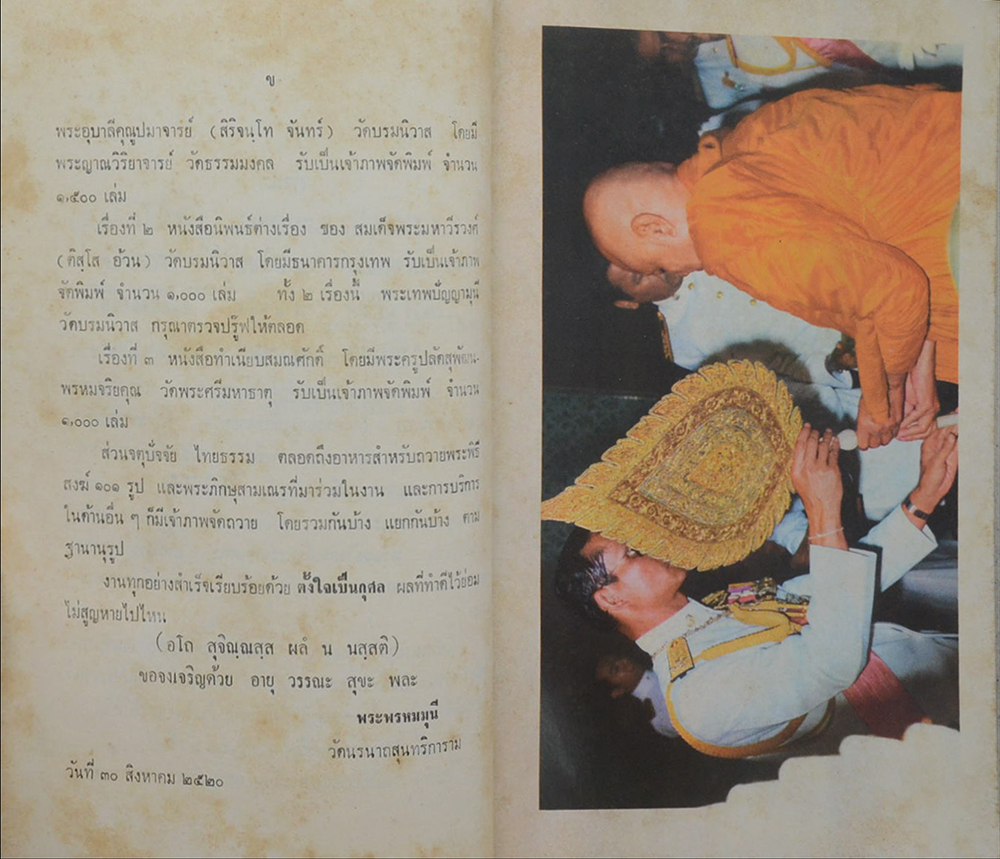 ข
พระอุบาลีคุณูปมาจารย์ (สิริจนฺโท จันทร์) วัดบรมนิวาส โดยมี
พระญาณวิริยาจารย์ วัดธรรมมงคล รับเป็นเจ้าภาพจัดพิมพ์ จำนวน
๑,๕๐๐ เล่ม
เรื่องที่ ๒ หนังสือนิพนธ์ต่างเรื่อง ของ สมเด็จพระมหาวีรวงศ์
(ติสฺโส อ้วน) วัดบรมนิวาส โดยมีธนาคารกรุงเทพ รับเป็นเจ้าภาพ
จัดพิมพ์ จำนวน ๑,๐๐๐ เล่ม ทั้ง ๒ เรื่องนี้ พระเทพปัญญามุนี
วัดบรมนิวาส กรุณาตรวจปรู๊ฟให้ตลอด
เรื่องที่ ๓ หนังสือทำเนียบสมณศักดิ์ โดยมีพระครูปลัดสุพัฒน-
พรหมจริยคุณ วัดพระศรีมหาธาตุ รับเป็นเจ้าภาพจัดพิมพ์ จำนวน
๑,๐๐๐ เล่ม
ส่วนจตุปัจจัย ไทยธรรม ตลอดถึงอาหารสำหรับถวายพระพิธี
สงฆ์ ๑๐๑ รูป และพระภิกษุสามเณรที่มาร่วมในงาน และการบริการ
ในด้านอื่น ๆ ก็มีเจ้าภาพจัดถวาย โดยรวมกันบ้าง แยกกันบ้าง ตาม
ฐานานุรูป
งานทุกอย่างสำเร็จเรียบร้อยด้วย ตั้งใจเป็นกุศล ผลที่ทำดีไว้ย่อม
ไม่สูญหายไปไหน
(อโถ สุจิณฺณสฺส ผลํ น นสฺสติ)
ขอจงเจริญด้วย อายุ วรรณะ สุขะ พละ
พระพรหมมุนี
วัดนรนาถสุนทริการาม
วันที่ ๓๐ สิงหาคม ๒๕๒๐